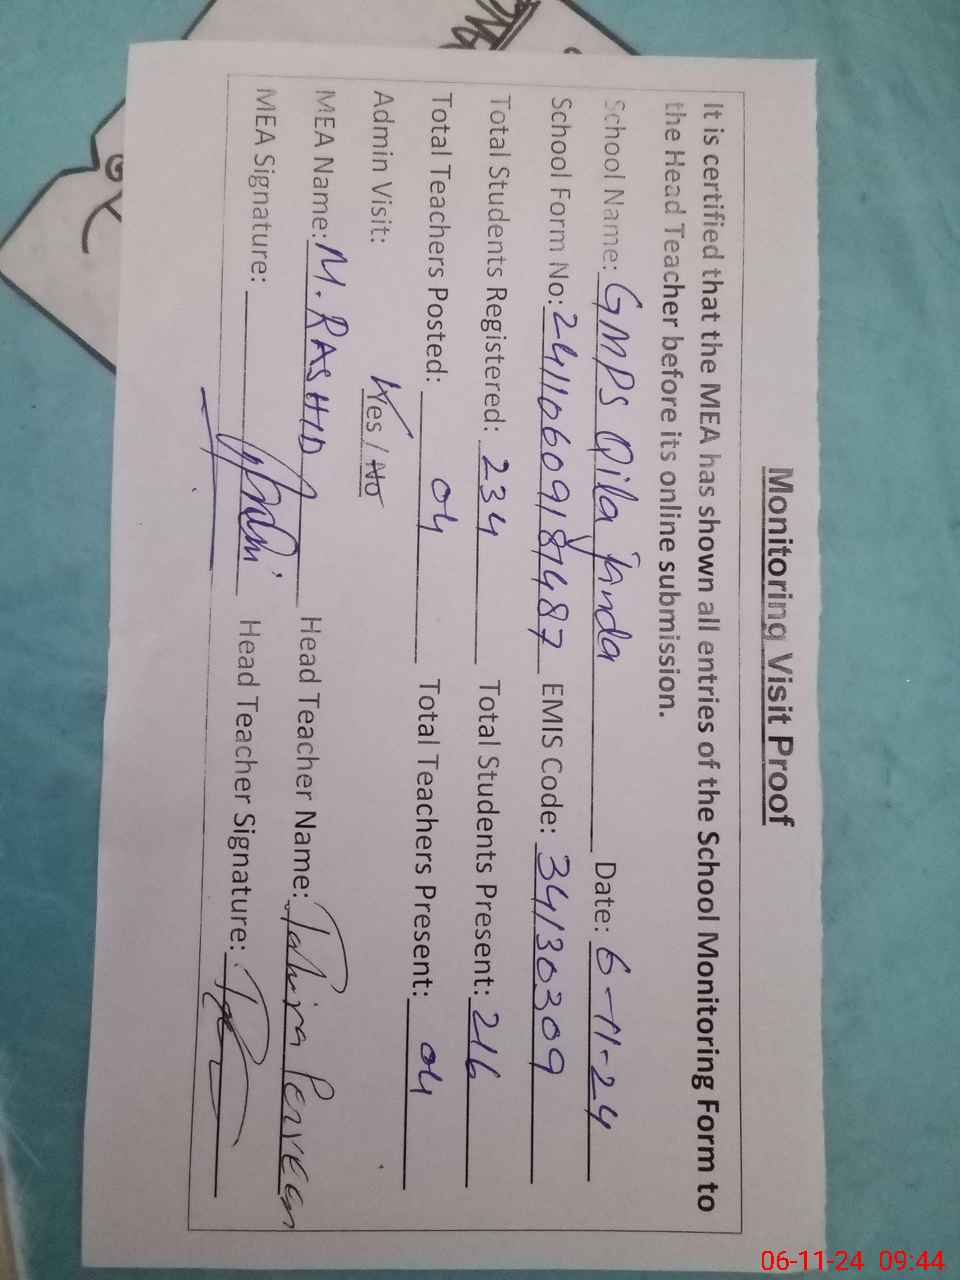 Monitoring Visit Proof
It is certified that the MEA has shown all entries of the School Monitoring Form to
the Head Teacher before its online submission.
School Name: GMPS Qila Janda Date: 6-11-24
School Form No: 24110609181487 EMIS Code: 34130309
Total Students Registered: 234 Total Students Present: 216
Total Teachers Posted: 04 Total Teachers Present: 04
Admin Visit: Yes / No
MEA Name: M. RASHID Head Teacher Name: Tahira Perveen
MEA Signature: Head Teacher Signature:
06-11-24 09:44